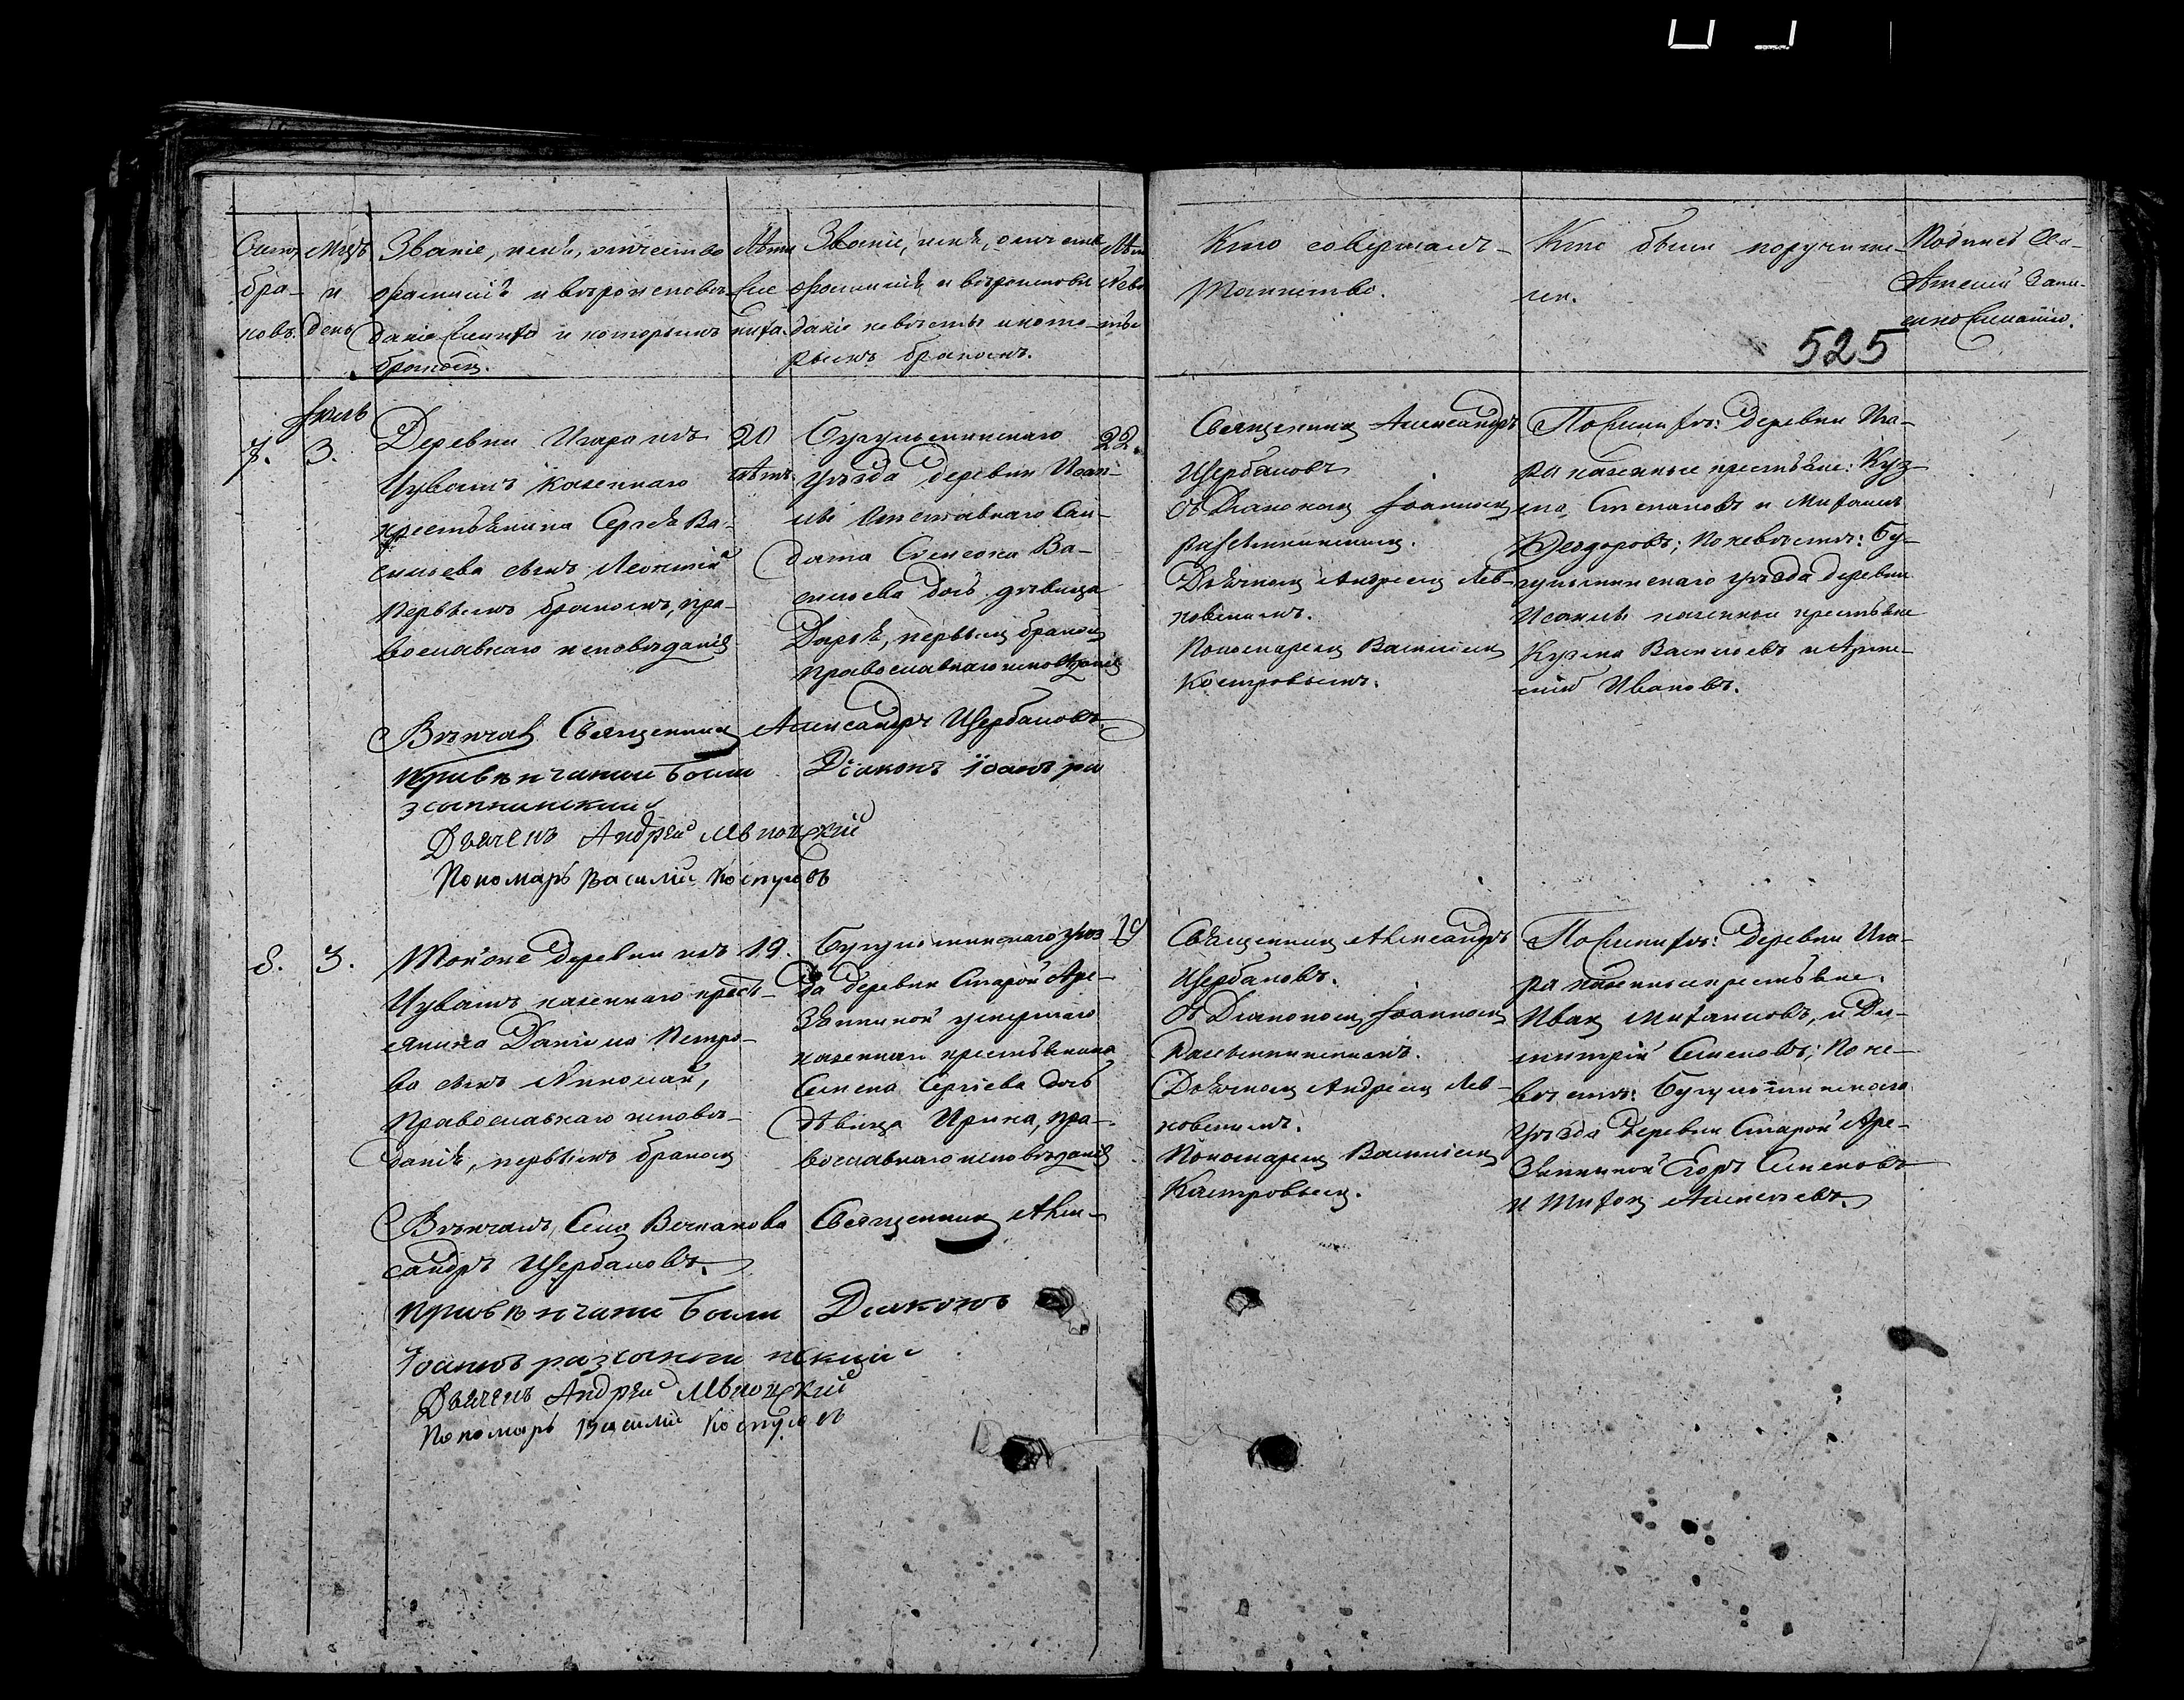 Счетъ
бра-
ковъ.
Мѣсъ
и
день
Званіе, имя, отчество
фамилія и вѣроисповѣ-
даніе жениха и которымъ
бракомъ.
Лѣта
же
ниха.
Званіе, имя, отчество
фамилія и вѣроисповѣ
даніе невѣсты и кото-
рымъ бракомъ.
Лѣта
Невѣ
сты
Кто совершалъ
Таинство.
Кто были поручите-
ли.
Подпись сви-
дѣтелей запи-
си по желанію.
525
Іюль
7. 3.
Деревни Игара изъ
Чувашъ казеннаго
крестьянина Сергѣя Ва-
сильева сынъ Леонтій
первымъ бракомъ, пра-
вославнаго исповѣданія
20
лѣтъ
Бугульминскаго
уѣзда деревни Исак-
лы Отставнаго Сал-
дата Симеона Ва-
сильева дочь дѣвица
Дарья, первымъ бракомъ
православнаго исповѣданія
22.
Священникъ Александръ
Щербаковъ
съ Діакономъ Іоанномъ
Дьячкомъ Андреемъ Лев-
ковскимъ.
Пономаремъ Василіемъ
Костровымъ.
По женихѣ: Деревни Ига-
ра казенные крестьяне: Куз-
ма Степановъ и Михаилъ
Ѳеодоровъ; По невѣстѣ: Бу-
гульминскаго уѣзда деревни
Исаклы казенные крестьяне
Кузма Васильевъ и
Ивановъ.
Вѣнчалъ Священникъ Александръ Щербаковъ
При вѣнчаніи были Діаконъ Іоанъ ра

Дьячекъ Андрей Левковский
Пономарь Василий Костровъ
8. 3.
Той же деревни изъ
Чувашъ казеннаго кресть-
янина Даніила Петро-
ва сынъ Николай,
Православнаго исповѣ-
данія, первымъ бракомъ
19.
Бугульминскаго уѣз
да деревни Старой Аре-
зяпкиной умершаго
казеннаго крестьянина
Семена Сергѣева дочь
дѣвица Ирина, пра-
вославнаго исповѣданія
19
Священникъ Александръ
Щербаковъ.
Съ Діакономъ Іоанномъ
Дьячкомъ Андреемъ Лев-
ковскимъ.
Пономаремъ Василіемъ
Костровымъ.
По женихѣ: Деревни Ига-
ра казенные крестьяне.
Иванъ Михайловъ, и Ди-
митрій Семеновъ; По не-
вѣстѣ: Бугульминскаго
уѣзда Деревни Старой Аре-
зяпкиной Егоръ Семеновъ
и Тихонъ Алексѣевъ.
Вѣнчалъ Священникъ Алек-
сандръ Щербаковъ.
При вѣнчаніи были Диаконъ
Іоаннъ
Дьячекъ Андрей Левковский
Пономарь Василий Костровъ